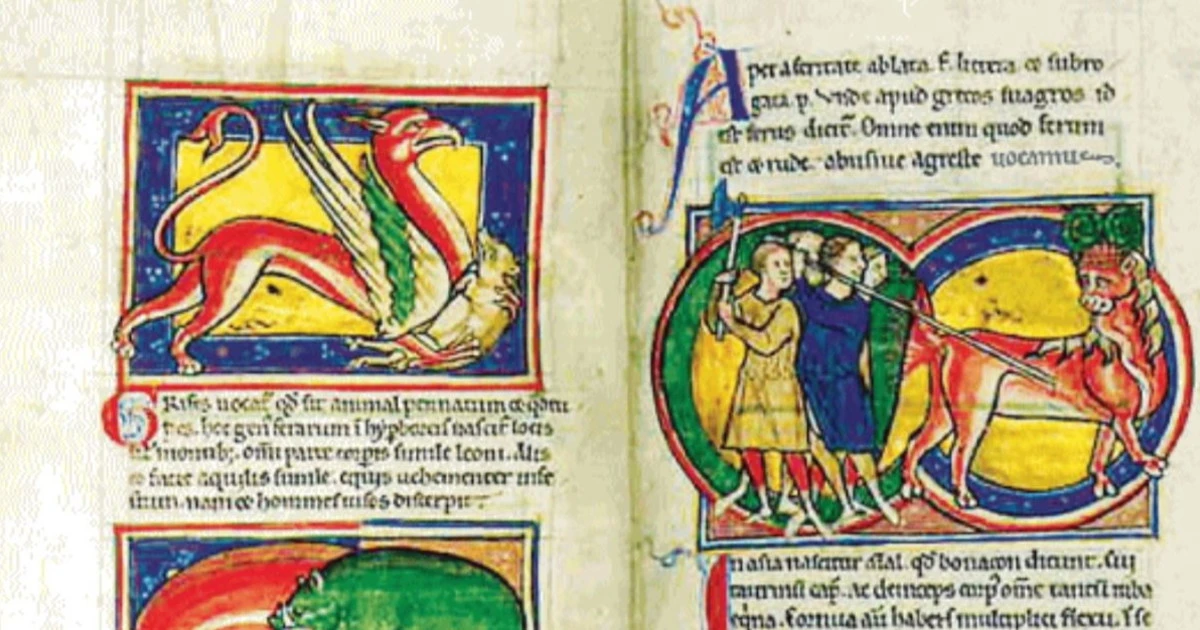 Rifes uocat' qd' sit animal pennatum & qdru
pes. hoc gen' ferarum i hyperboreis nascit' locis
monib;. omi parte corporis simile leoni. Alis
& facie aquilis simile. equis uehementer infe
stum. nam & homines uisos discerpit.
A
per aferitate ablata. F. littera. & subro
gata. p. Vnde apud grecos suagros id
est ferus dicit'. Omne enim quod ferum
est & rude. abusiue agreste uocamus.
In asia nascitur aial. qd' bonacon dicunt. Cui
taurinu cap'. Ac deinceps corp' ome tantu iuba
eqna. Cornua au habens multiplici flexu